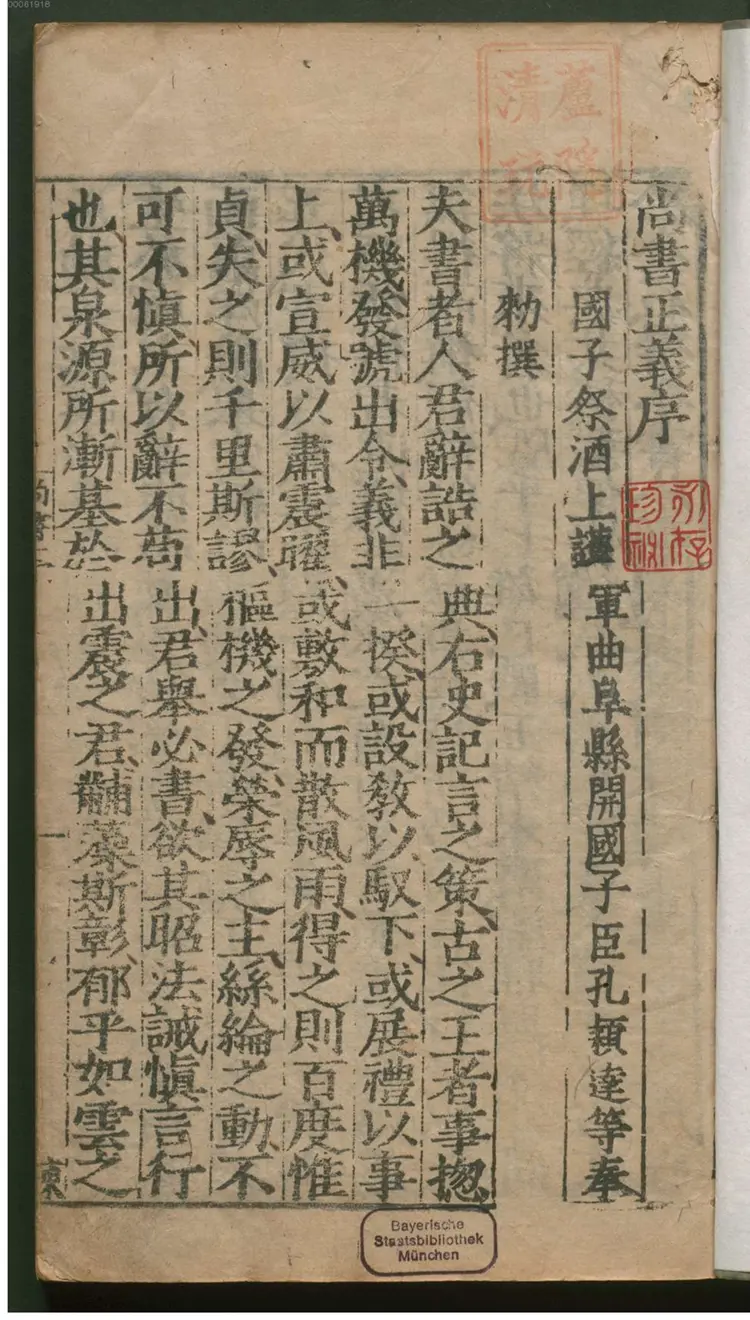 00061918
尚書正義序
國子祭酒上護軍曲阜縣開國子臣孔穎達等奉
勑撰
夫書者人君辭誥之典右史記言之策古之王者事揔
萬機發號出令義非一揆或設教以馭下或展禮以事
上或宣威以肅震曜或敷和而散風雨得之則百度惟
貞失之則千里斯謬樞機之發榮辱之主絲綸之動不
可不慎所以辭不苟出君舉必書欲其昭法誡慎言行
也其泉源所漸基於出震之君黼藻斯彰郁乎如雲之
Bayerische
Staatsbibliothek
München